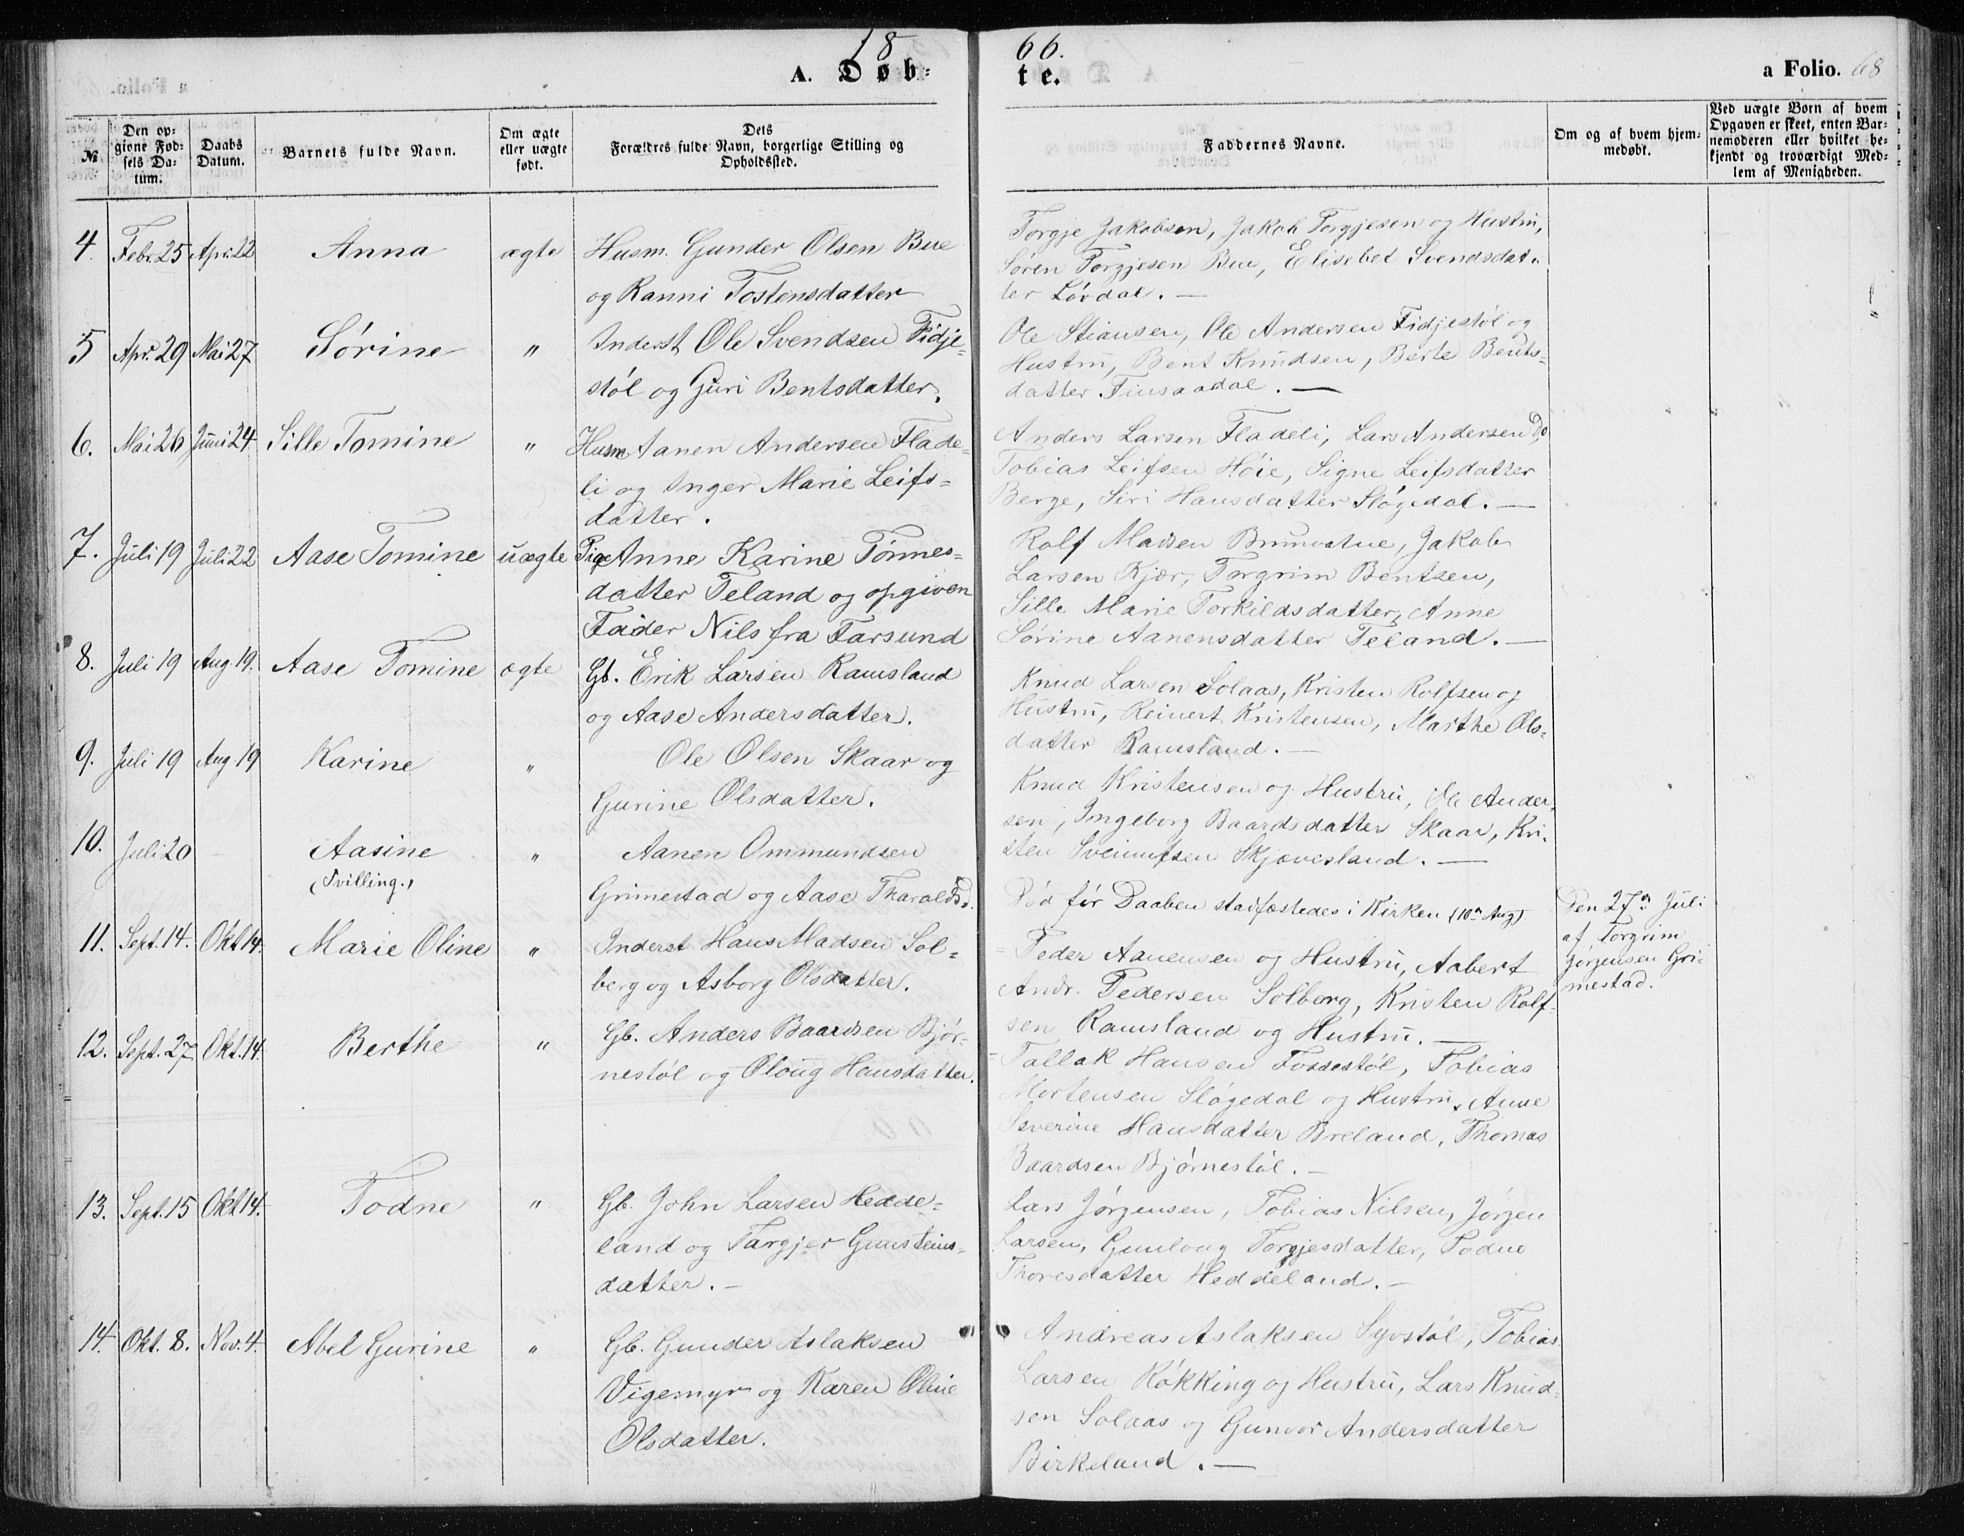 1866.
A. Døbte.
a Folio. 68
№
Den opgivne Fødsels Datum.
Daabs Datum.
Barnets fulde Navn.
Om ægte eller uægte født.
Dets Forældres fulde Navn, borgerlige Stilling og Opholdssted.
Faddernes Navne.
Om og af hvem hjemmedøbt.
Ved uægte Børn af hvem Opgaven er skeet, enten Barnemoderen eller hvilket bekjendt og troværdigt Medlem af Menigheden.
4. Febr. 25 Apr. 22 Anna ægte Husm. Gunder Olsen Bue
og Ranni Tostensdatter
Torgje Jakobsen, Jakob Torgjesen og Hustru,
Søren Torgjesen Bue, Elisebet Svendsdat-
ter Løvdal. —
5 Apr. 29 Mai 27 Sørine " Inderst Ole Svendsen Fidje-
støl og Guri Bentsdatter.
Ole Stiansen, Ole Andersen Fidjestøl og
Hustru, Bent Knudsen, Berte Bents-
datter Finsaadal. —
6. Mai 26 Juni 24 Sille Tomine " Husm Aanen Andersen Flade-
li og Inger Marie Leifs-
datter.
Anders Larsen Fladeli, Lars Andersen Do
Tobias Leifsen Høie, Signe Leifsdatter
Berge, Siri Hansdatter Sløgedal. —
7. Juli 19 Juli 22 Aase Tomine uægte Pige Anne Karine Tønnes-
datter Teland og opgiven
Fader Nils fra Farsund
Rolf Madsen Brunvatne, Jakob
Larsen Kjær, Torgrim Bentsen,
Sille Marie Torkildsdatter, Anne
Sørine Aanensdatter Teland. —
8. Juli 19 Aug 19. Aase Tomine ægte Gb. Erik Larsen Ramsland
og Aase Andersdatter.
Knud Larsen Solaas, Kristen Rolfsen og
Hustru, Reinert Kristensen, Marthe Ols-
datter Ramsland. —
9. Juli 19 Aug 19 Karine " Ole Olsen Skaar og
Gurine Olsdatter.
Knud Kristensen og Hustru, Ole Ander-
sen, Ingeborg Baardsdatter Skaar, Kri-
sten Sveinufsen Skjævesland. —
10. Juli 20 — Aasine " Aanen Ommundsen
(Tvilling.)
Grimestad og Aase Tharaldsd.
Død før Daaben stadfæstedes i Kirken (10de Aug)
Den 27de Juli
af Torgrim
Jørgensen Gri-
mestad.
11. Sept. 14. Okt 14. Marie Oline " Inderst Hans Madsen Sol-
berg og Asborg Olsdatter.
Peder Aanensen og Hustru, Aabert
Andr. Pedersen Solberg, Kristen Rolf-
sen Ramsland og Hustru. —
12. Sept. 27 Okt. 14 Berthe " Gb. Anders Baardsen Bjør-
nestøl og Oloug Hansdatter.
Tallak Hansen Fossestøl, Tobias
Mortensen Sløgedal og Hustru, Anne
Severine Hansdatter Breland, Thomas
Baardsen Bjørnestøl. —
13. Sept. 15 Okt 14. Todne " Gb. John Larsen Hedde-
land og Targjer Gunsteins-
datter. —
Lars Jørgensen, Tobias Nilsen, Jørgen
Larsen, Gunloug Torgjesdatter, Todne
Thoresdatter Heddeland. —
14. Okt. 8. Nov. 4. Abel Gurine " Gb. Gunder Aslaksen
Vigemyr og Karen Oline
Olsdatter.
Andreas Aslaksen Syvstøl, Tobias
Larsen Røkking og Hustru, Lars Knud-
sen Solaas og Gunvor Andersdatter
Birkeland. —